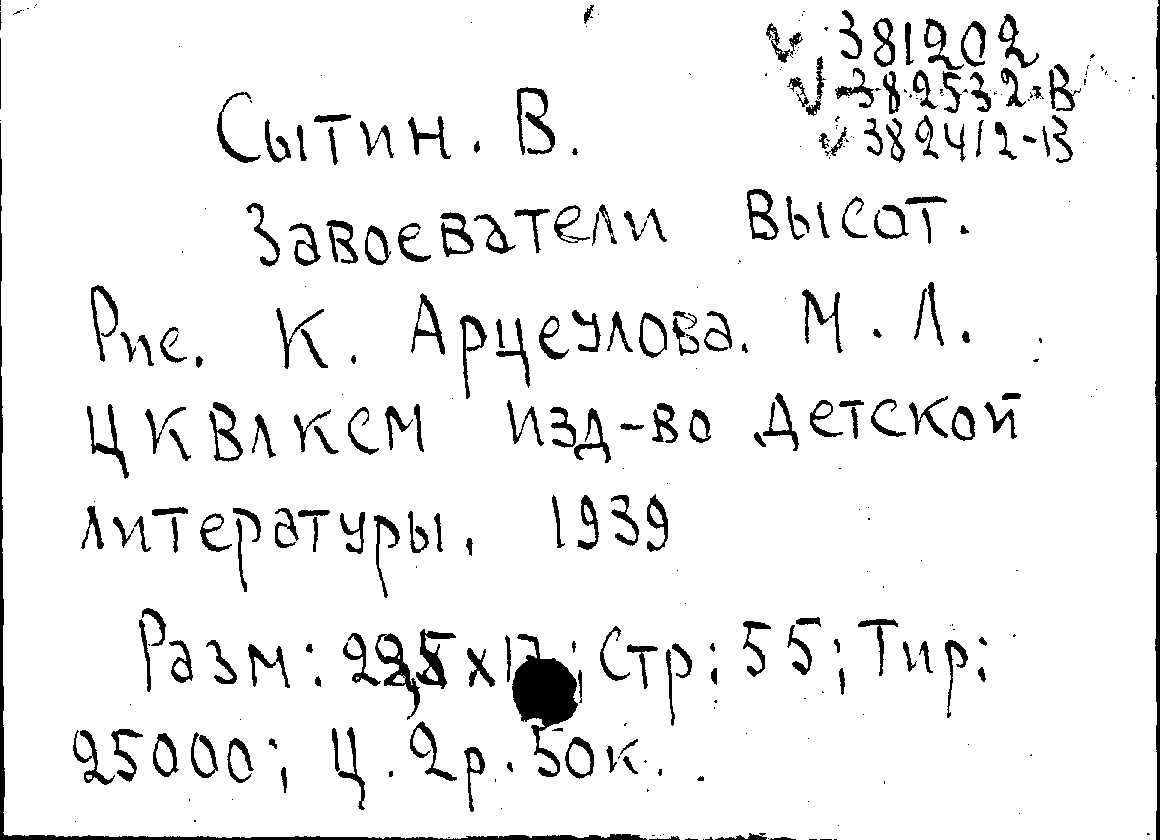 381202
382532-В
382412-В
Сытин. В.
Завоеватели высот.
Рис. К. Арцеулова. М. Л.
ЦКВЛКСМ изд-во детской
литературы. 1939
Разм: х17; Стр: 55; Тир:
25000; Ц. 2р. 50к.